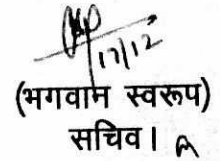 17/12
(भगवान स्वरूप)
सचिव।